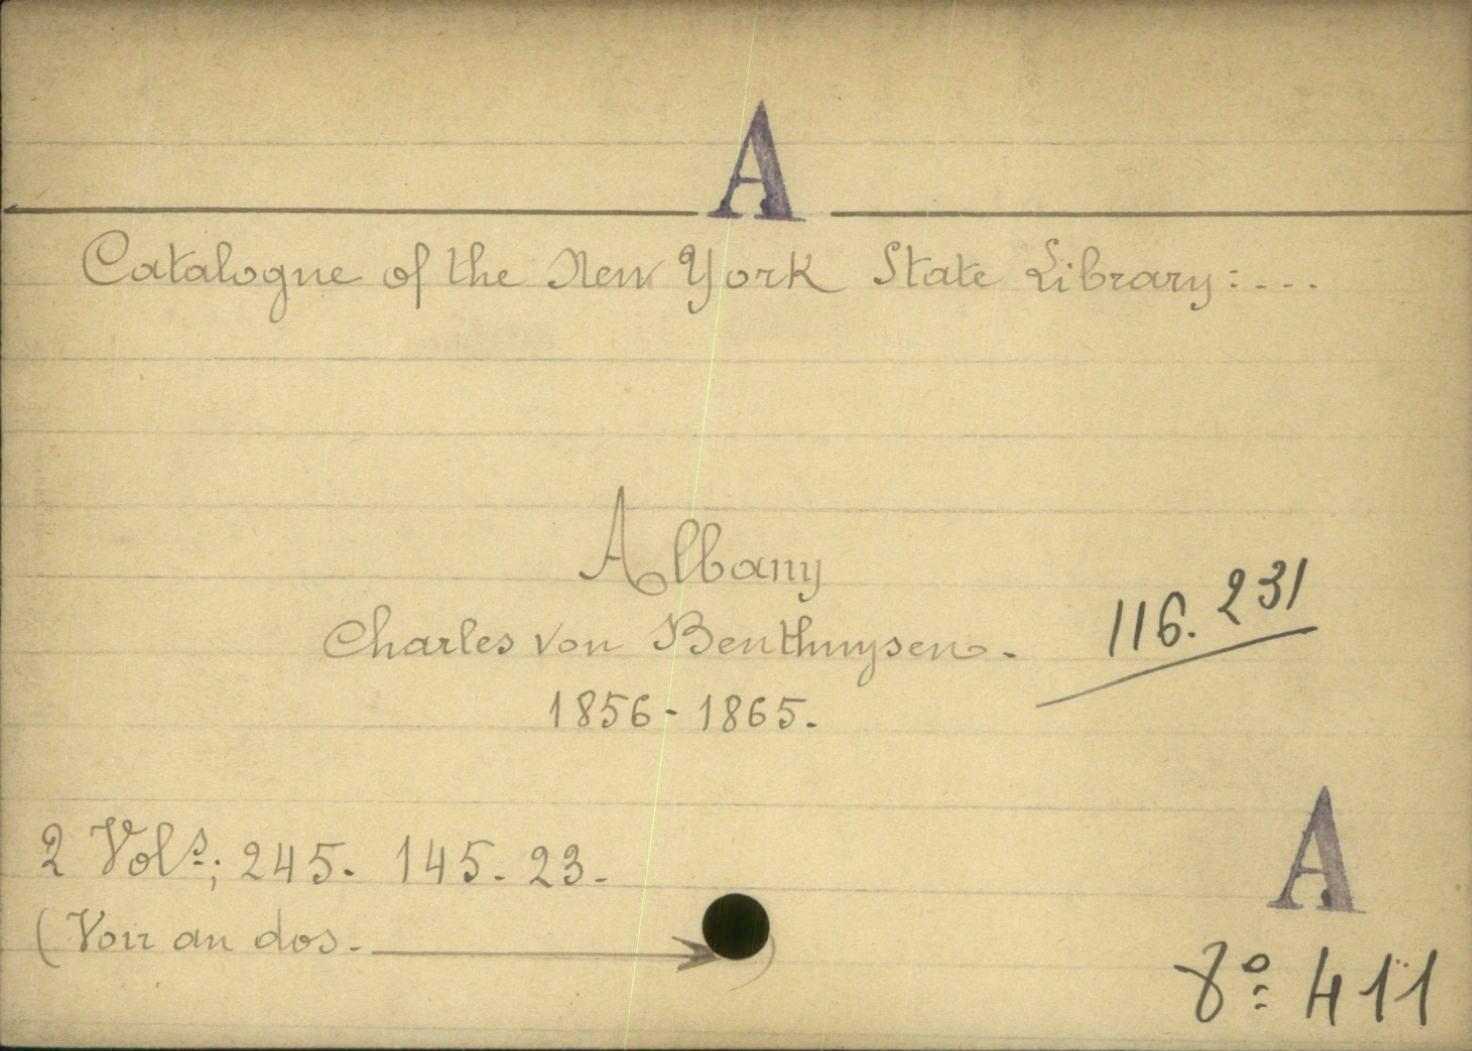 A
Catalogue of the New York State Library:....
Albany
Charles von Benthuysen.
116.231
1856-1865.
2 Vols; 245. 145. 23.
(Voir au dos. )
A
8º 411